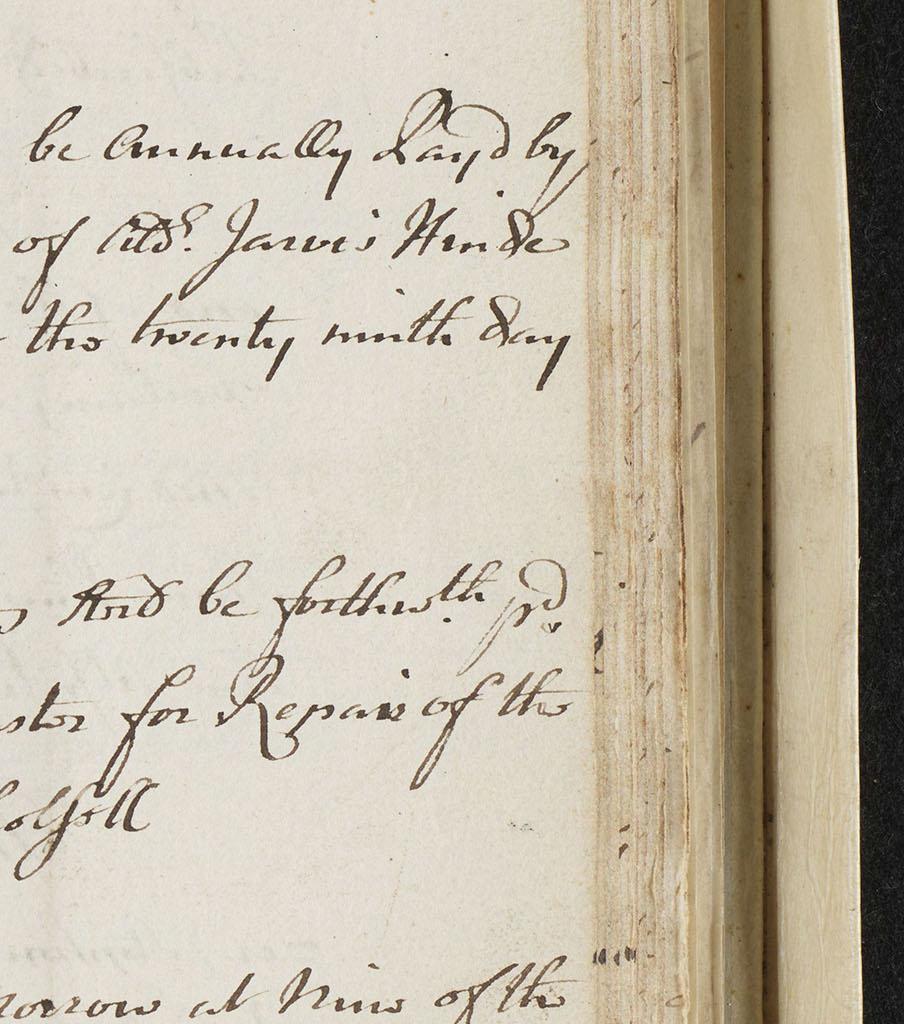 be annually Pay'd by
of Ald.r Jarvis Hinde
the twenty ninth day
And be forthw.th p.d
for Repair of the
morrow at Nine of the